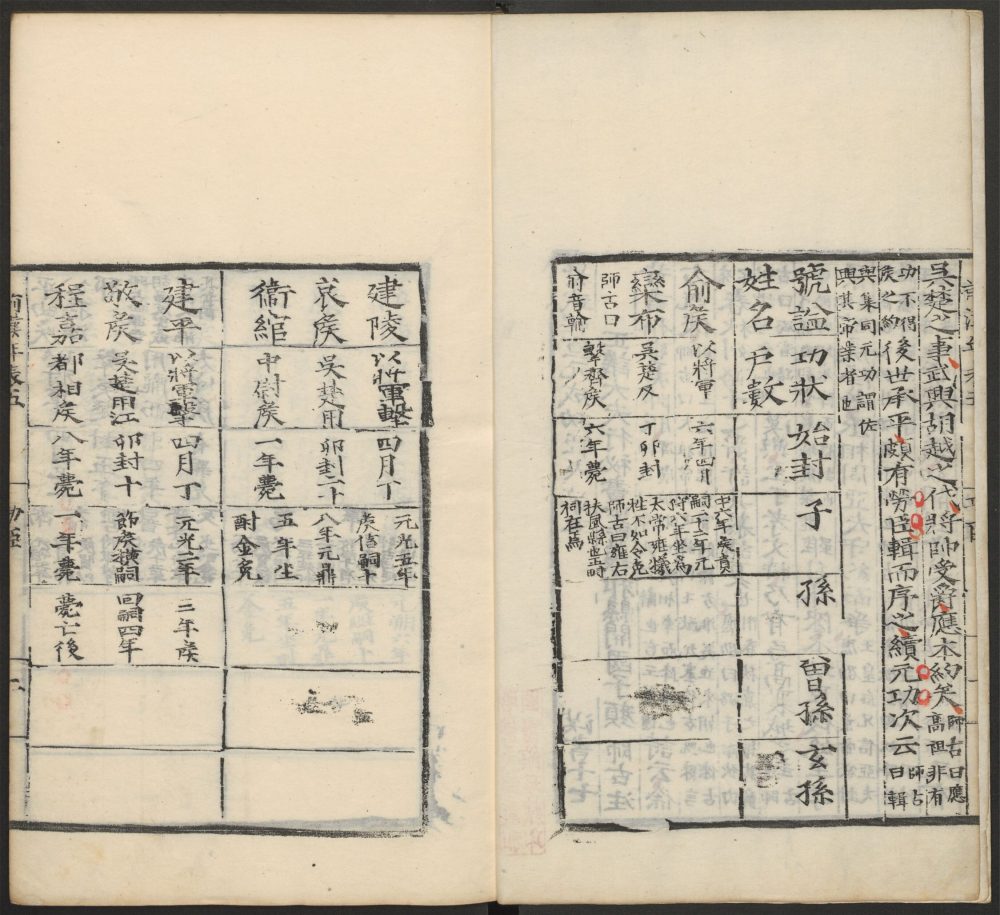 吳楚之事武興胡越之伐將帥受爵應本約矣師古曰應高祖非有
功不得
侯之約後世承平頗有勞臣輯而序之續元功次云師古曰輯
與集同元功謂佐
興其帝業者也
號諡功狀始封子孫曾孫玄孫
姓名戶數
俞侯
以將軍
六年四月
中六年侯賁
嗣二十二年元
狩六年坐為
太常雍犧
牲不如令免
師古曰雍右
扶風縣也五畤
祠在焉
欒布
吳楚反
丁卯封
師古曰
俞音輸
擊齊侯
六年薨
建陵
以將軍擊
四月丁
元光五年
哀侯
吳楚用
卯封二十
侯信嗣十
八年元鼎
衞綰
中尉侯
一年薨
五年坐
酎金免
建平
以將軍擊
四月丁
元光二年
三年侯
敬侯
吳楚用江
卯封十
節侯橫嗣
回嗣四年
程嘉
都相侯
八年薨
一年薨
薨亡後
前漢年表五
功臣